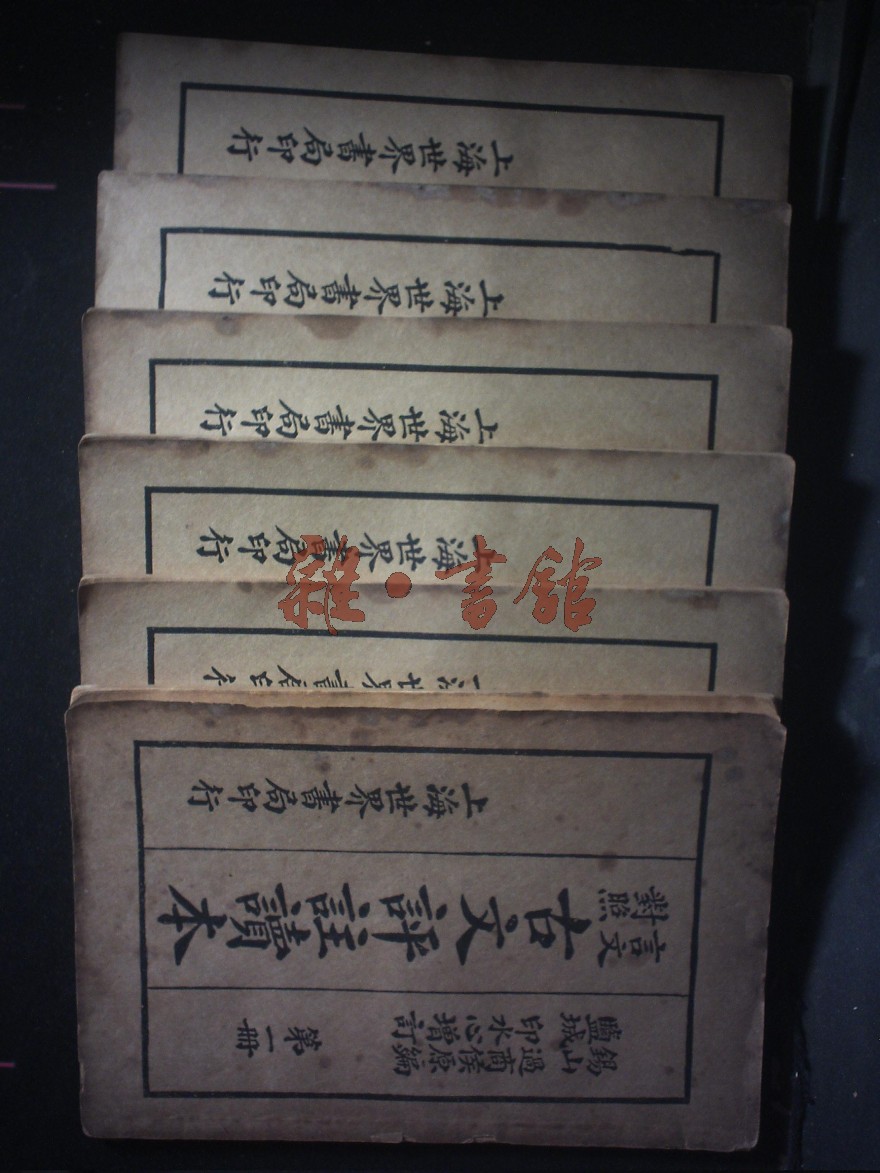 錫山過商侯原編
鹽城印水心增訂
第一冊
言文對照
古文評註讀本
上海世界書局印行
上海世界書局印行
上海世界書局印行
上海世界書局印行
上海世界書局印行
雜·書館